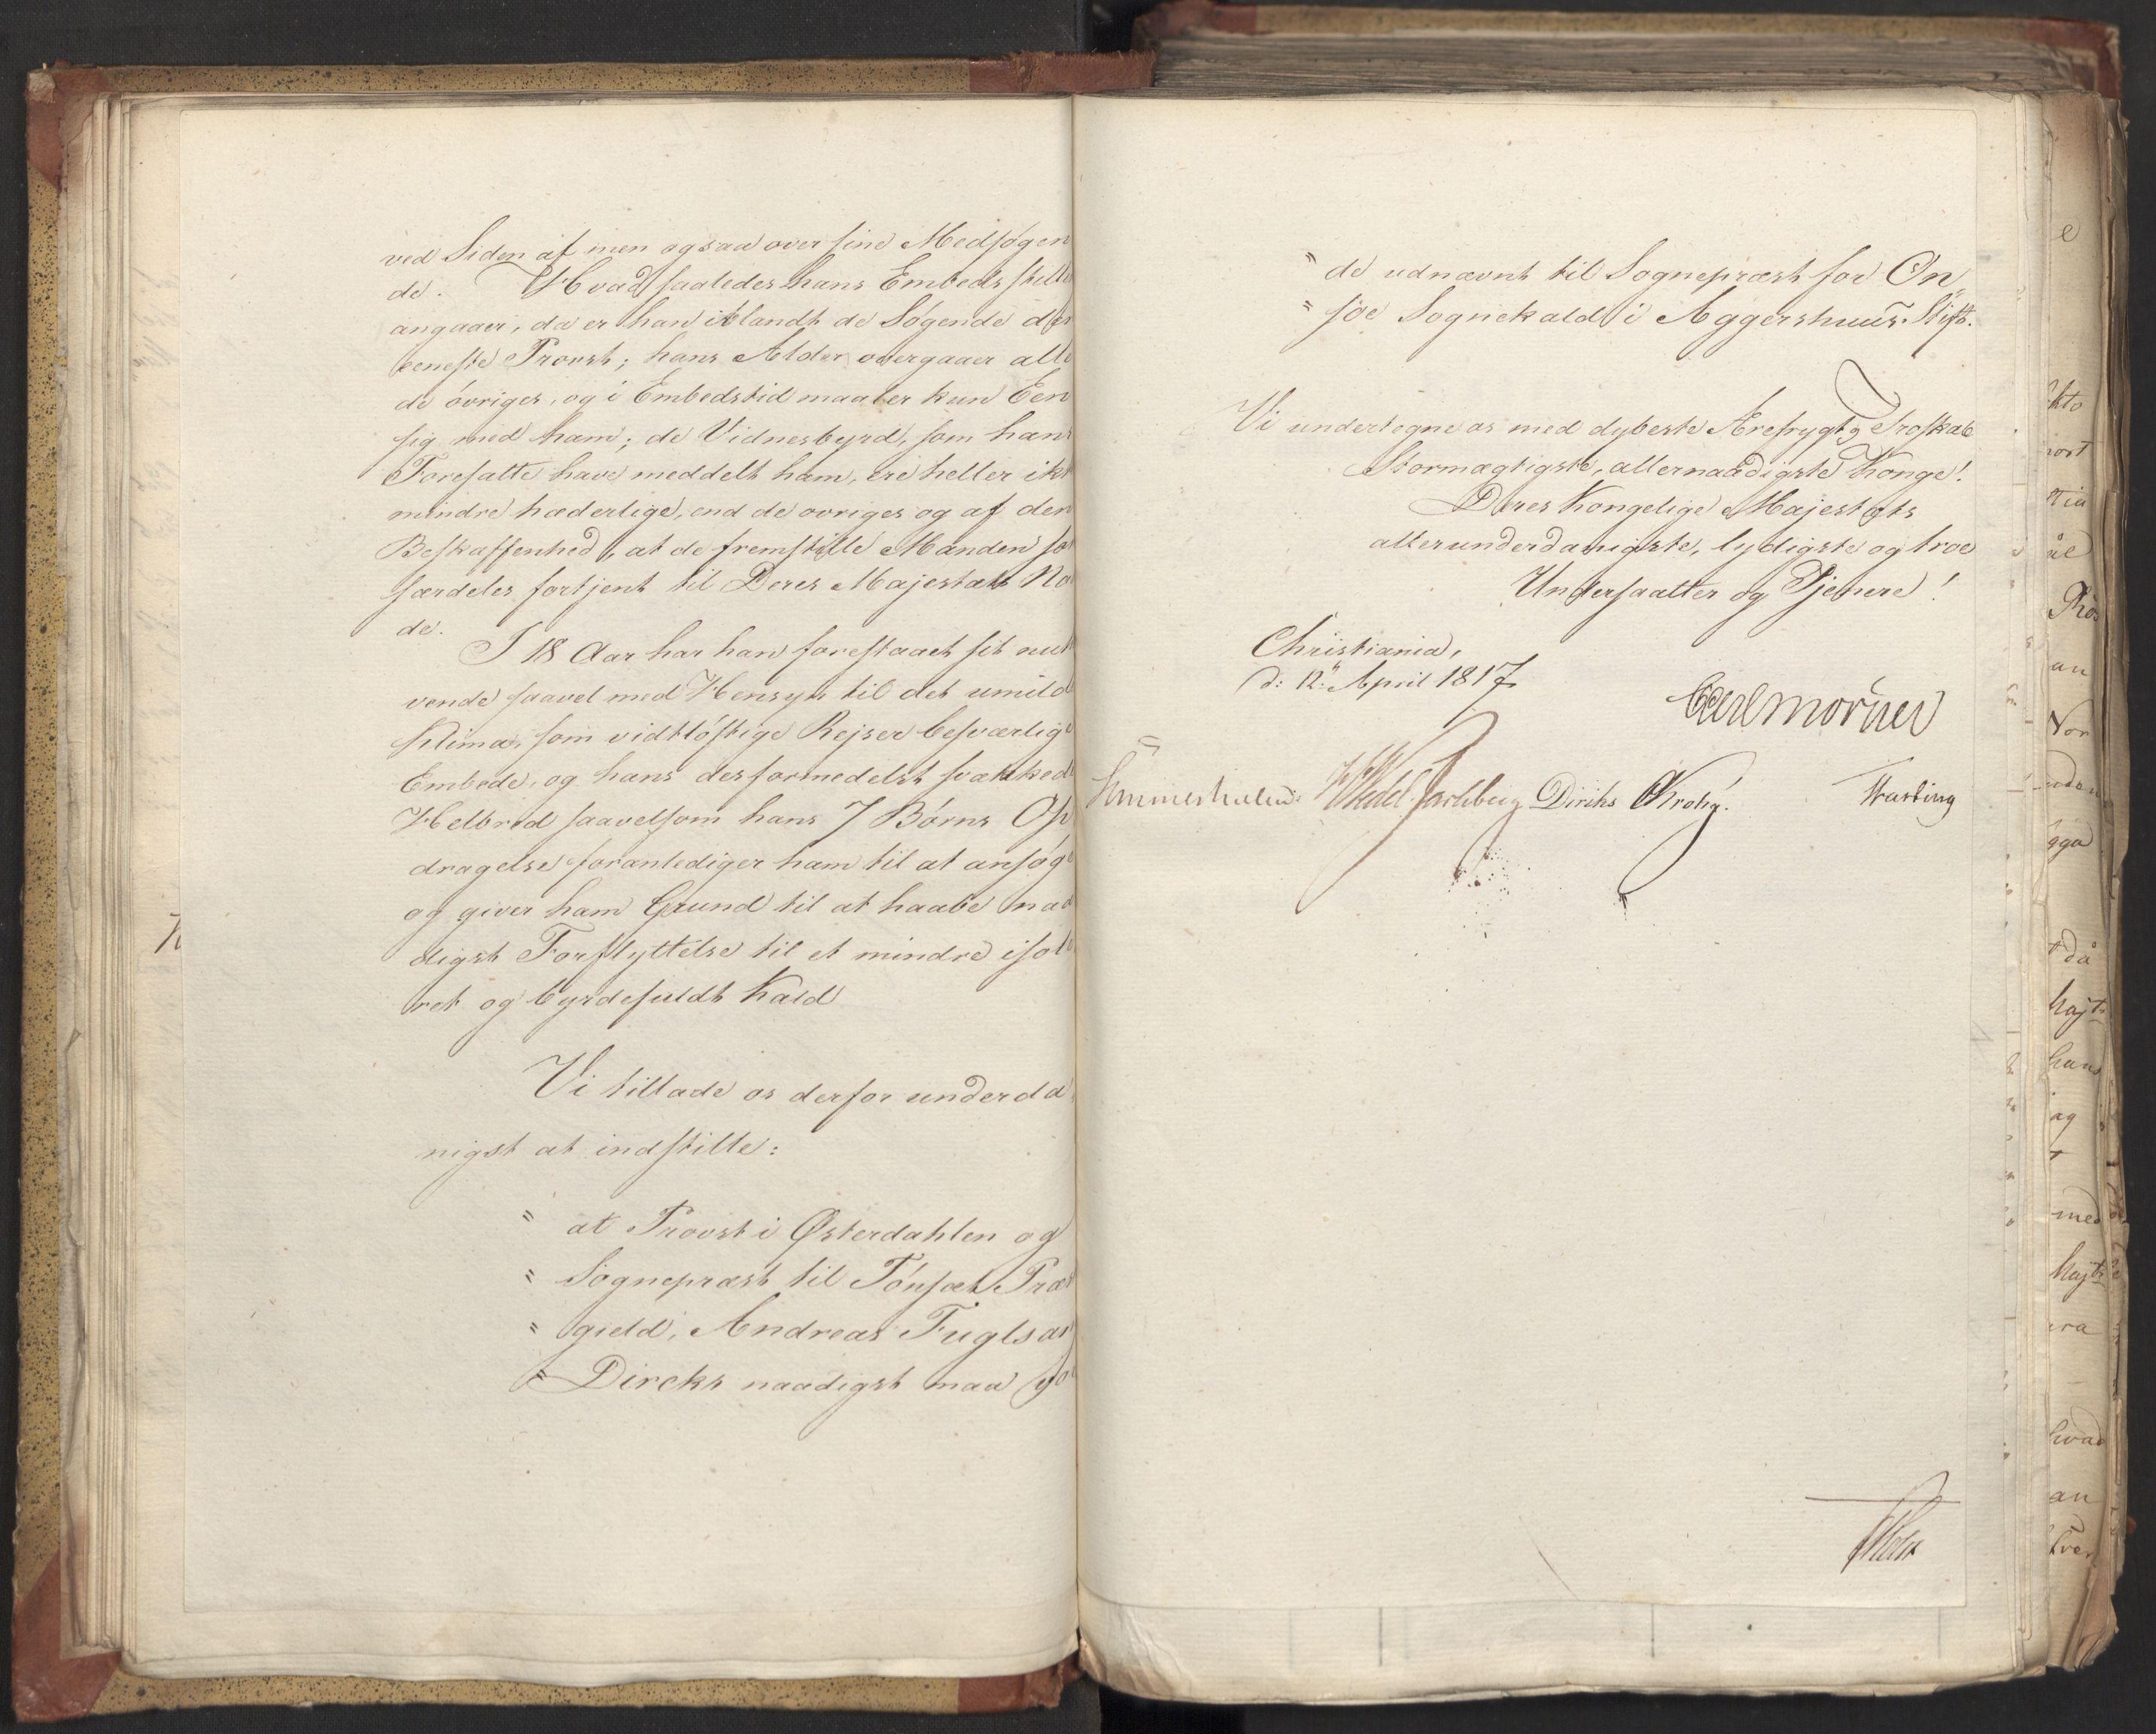 ved Siden af men ogsaa over sine Medsøgen
de. Hvad saaledes hans Embeds stilli
angaaer, da er han iblandt de Søgende den
eeneste Provst; hans Alder overgaaer alle
de övriges, og i Embedstid maaler kun Een
sig med ham; de Vidnesbyrd, som hans
Foresatte have meddelt ham, ere heller ikk
mindre hæderlige, end de ovriges og af den
Beskaffenhed, at de fremstille Manden so
særdeles fortjent til Deres Majestæts Naa
de.
I 18 Aar har han forestaaet sit nu
vende saavel med Hensyn til det umild
Klima, som vidtløftige Rejser besværlige
Embede, og hans desformedelst svækked
Helbred saavelsom hans 7 Børns Op
dragelse foranlediger ham til at ansøge
og giver ham Grund til at haabe naa
digst Forflyttelse til et mindre isole
ret og byrdefuldt Kald
Vi tillade os derfor underda
nigst at indstille:
" at Provst i Østerdahlen og
" Sognepræst til Tönset Præs
" gield, Andreas Fuglsan
" Dircks naadigst maa vo
" de udnævnt til Sognepræst for On„
" søe Sognekald i Aggershuus Stift.
Vi undertegne os med dybeste Ærefrygt og Troskab
Stormægtigste, allernaadigste Konge!
Deres Kongelige Majestæts
allerunderdanigste, lydigste og troe
Undersaatter og Tjenere!
Christiania,
d: 12te April 1817
Carl Mörner
Sommerhielm HWedel Jarlsberg Diriks CKrohg. Thrasting
Holst